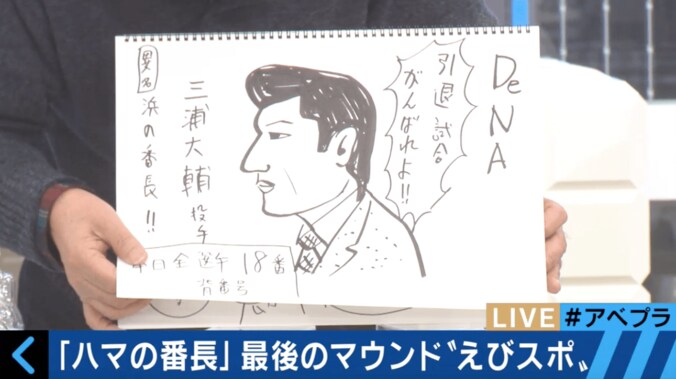 DeNA
引退試合
がんばれよ!!
三浦大輔投手
異名
浜の番長!!
今日全選手18番
背番号
LIVE
#アベプラ
「ハマの番長」最後のマウンド〝えびスポ〟